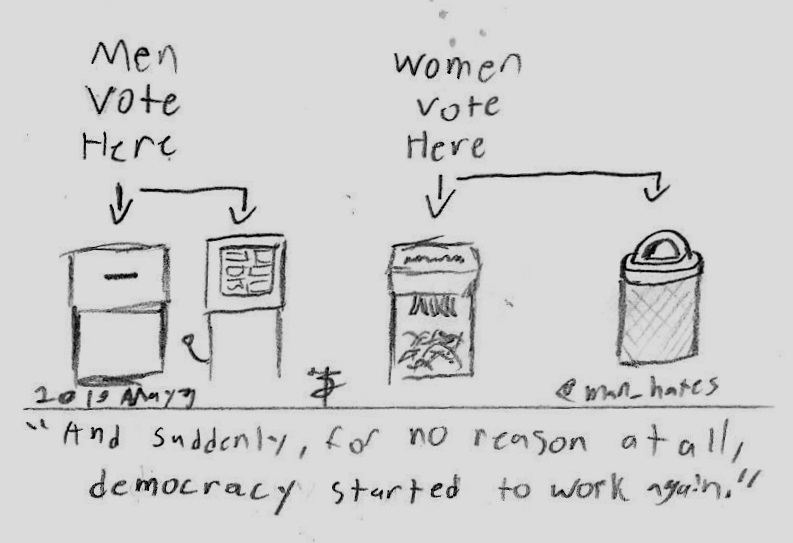 Men
Vote
Here
Women
Vote
Here
2019 May
@man_hates
"And suddenly, for no reason at all,
democracy started to work again."